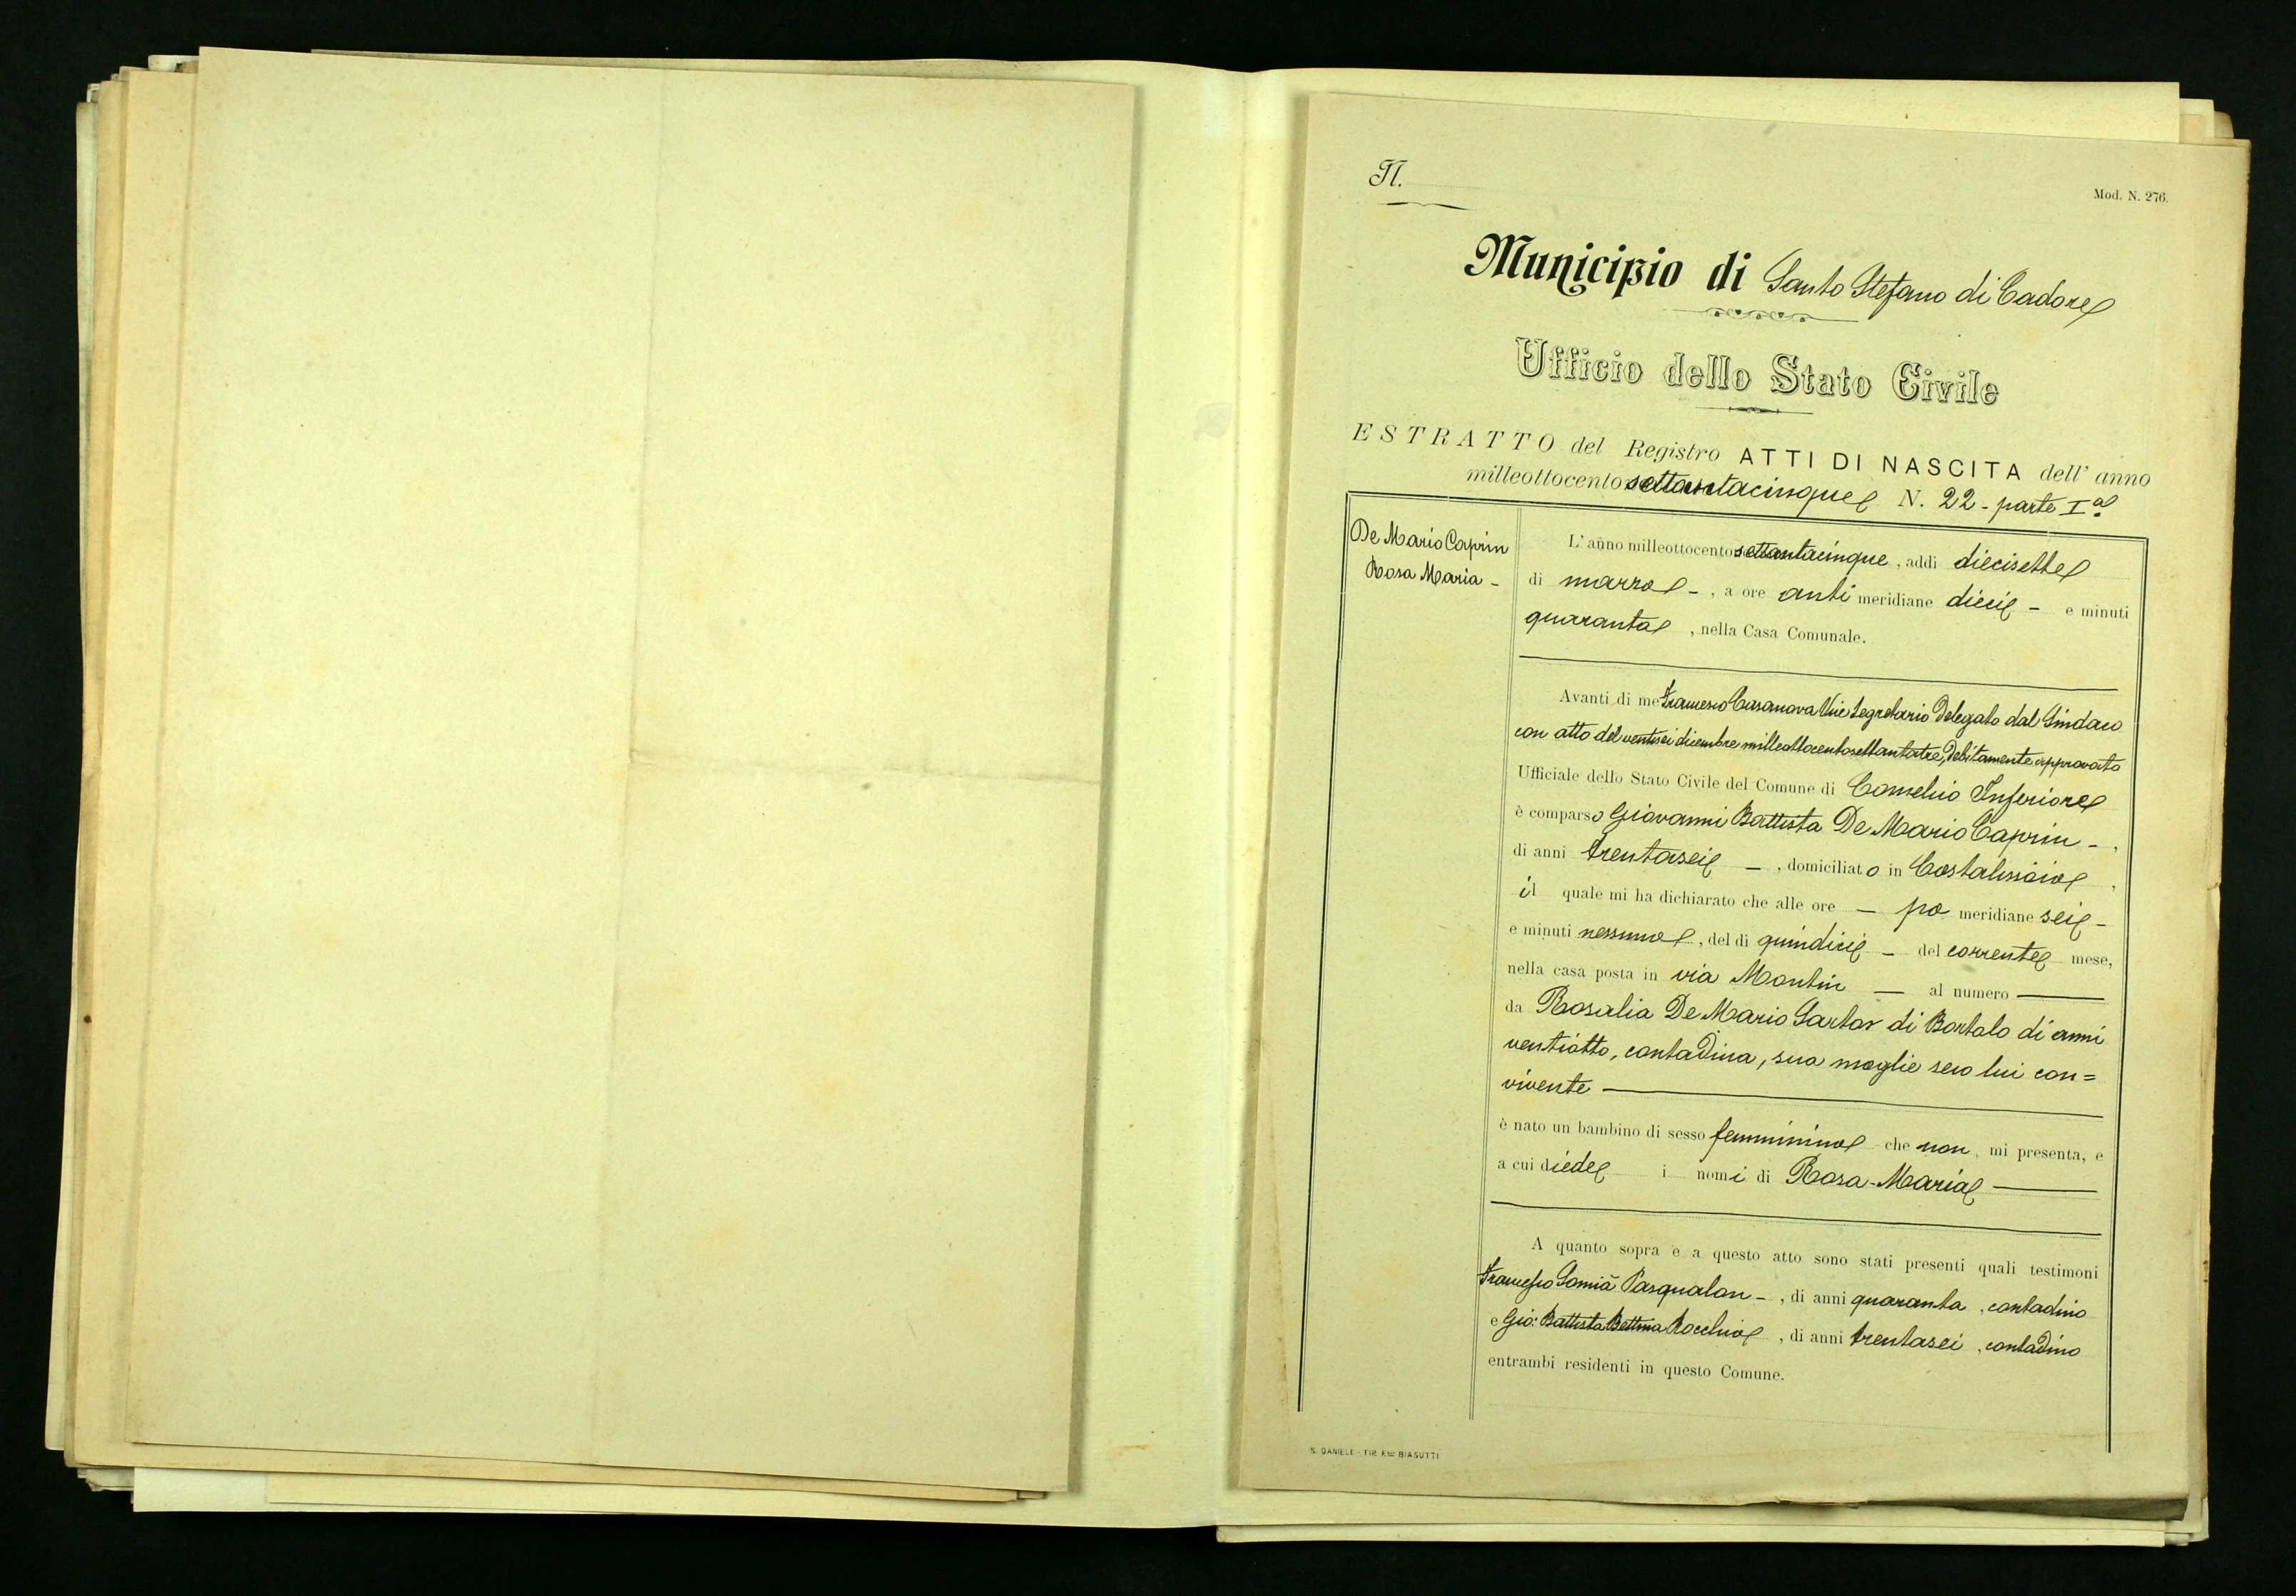 N.
Mod. N. 276.
Municipio di Santo Stefano di Cadore
Ufficio dello Stato Civile
ESTRATTO del Registro ATTI DI NASCITA dell' anno
milleottocento settantacinque N. 22 - parte Iª
De Mario Caprin
Rosa Maria -
L' anno milleottocento settantacinque, addì diecisette
di marzo - , a ore anti meridiane dieci - e minuti
quaranta , nella Casa Comunale.
Avanti di me Francesco Casanova Vice Segretario Delegato dal Sindaco
con atto del ventisei dicembre milleottocentosettantatre, debitamente approvato
Ufficiale dello Stato Civile del Comune di Comelico Inferiore
è comparso Giovanni Battista De Mario Caprin - ,
di anni trentasei - , domiciliato in Costalissoio ,
il quale mi ha dichiarato che alle ore - po meridiane sei -
e minuti nessuno , del dì quindici - del corrente mese,
nella casa posta in via Montin - al numero —
da Rosalia De Mario Sartor di Bortolo di anni
ventiotto, contadina, sua moglie seco lui con=
vivente —
è nato un bambino di sesso femminino che non mi presenta, e
a cui diede i nomi di Rosa-Maria —
A quanto sopra e a questo atto sono stati presenti quali testimoni
Francesco Comià Pasqualon - , di anni quaranta , contadino
e Gio: Battista Bettina Rocchio , di anni trentasei , contadino
entrambi residenti in questo Comune.
S. DANIELE - TIP. F.lli BIASUTTI